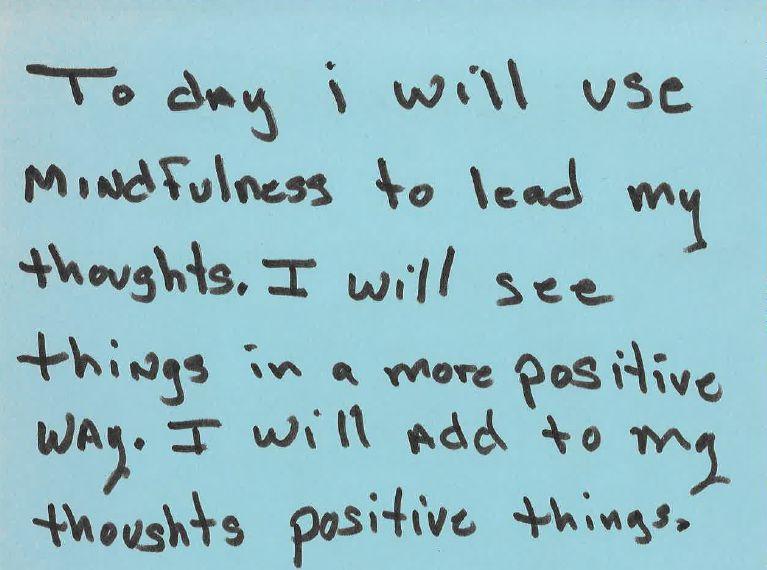 To day i will use
MINdfulness to lead my
thoughts. I will see
thiNgs in a more positive
WAy. I will Add to my
thoughts positive things.